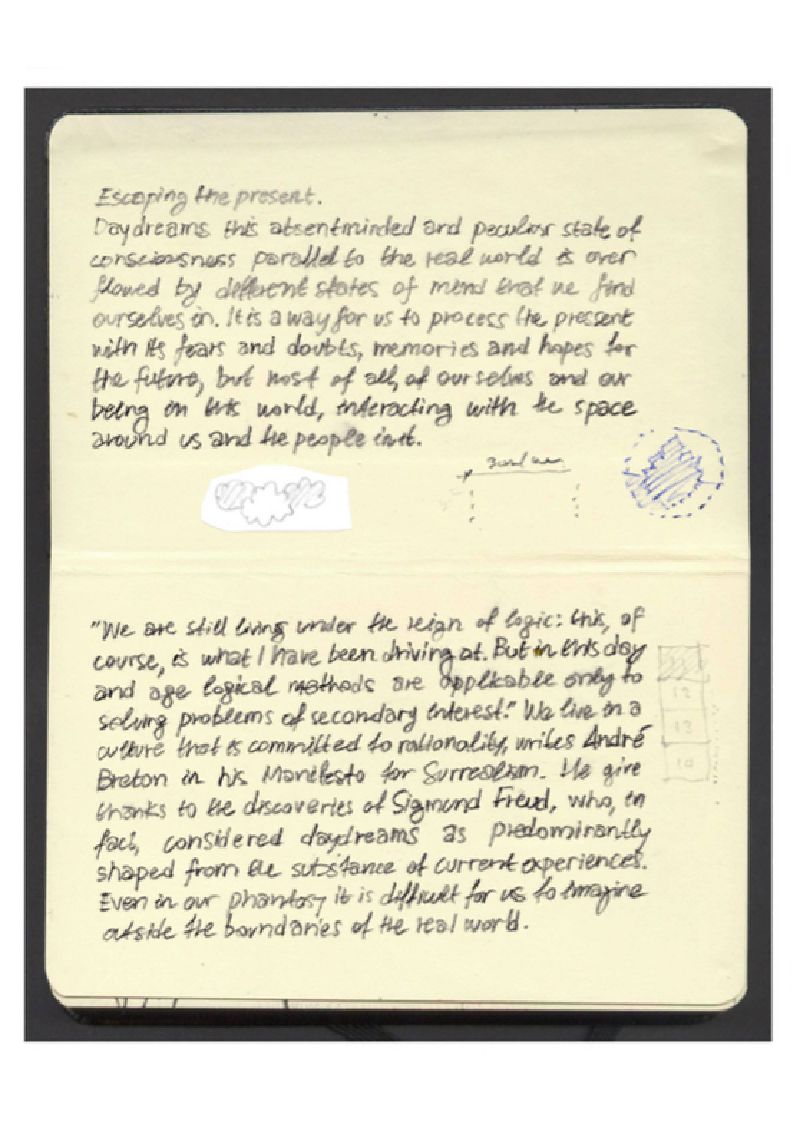 Escaping the present.
Daydreams this absentminded and peculiar state of
consciousness parallel to the real world is over
flowed by different states of mend that we find
ourselves in. It is a way for us to process the present
with its fears and doubts, memories and hopes for
the future, but most of all, of ourselves and our
being in this world, interacting with the space
around us and the people in it.
"We are still living under the reign of logic: this, of
course, is what I have been driving at. But in this day
and age logical methods are applicable only to
solving problems of secondary interest." We live in a
culture that is committed to rationality, writes André
Breton in his Manifesto for Surrealism. He give
thanks to the discoveries of Sigmund Freud, who, in
fact, considered daydreams as predominantly
shaped from the substance of current experiences.
Even in our phantasy it is difficult for us to imagine
outside the boundaries of the real world.
12
13